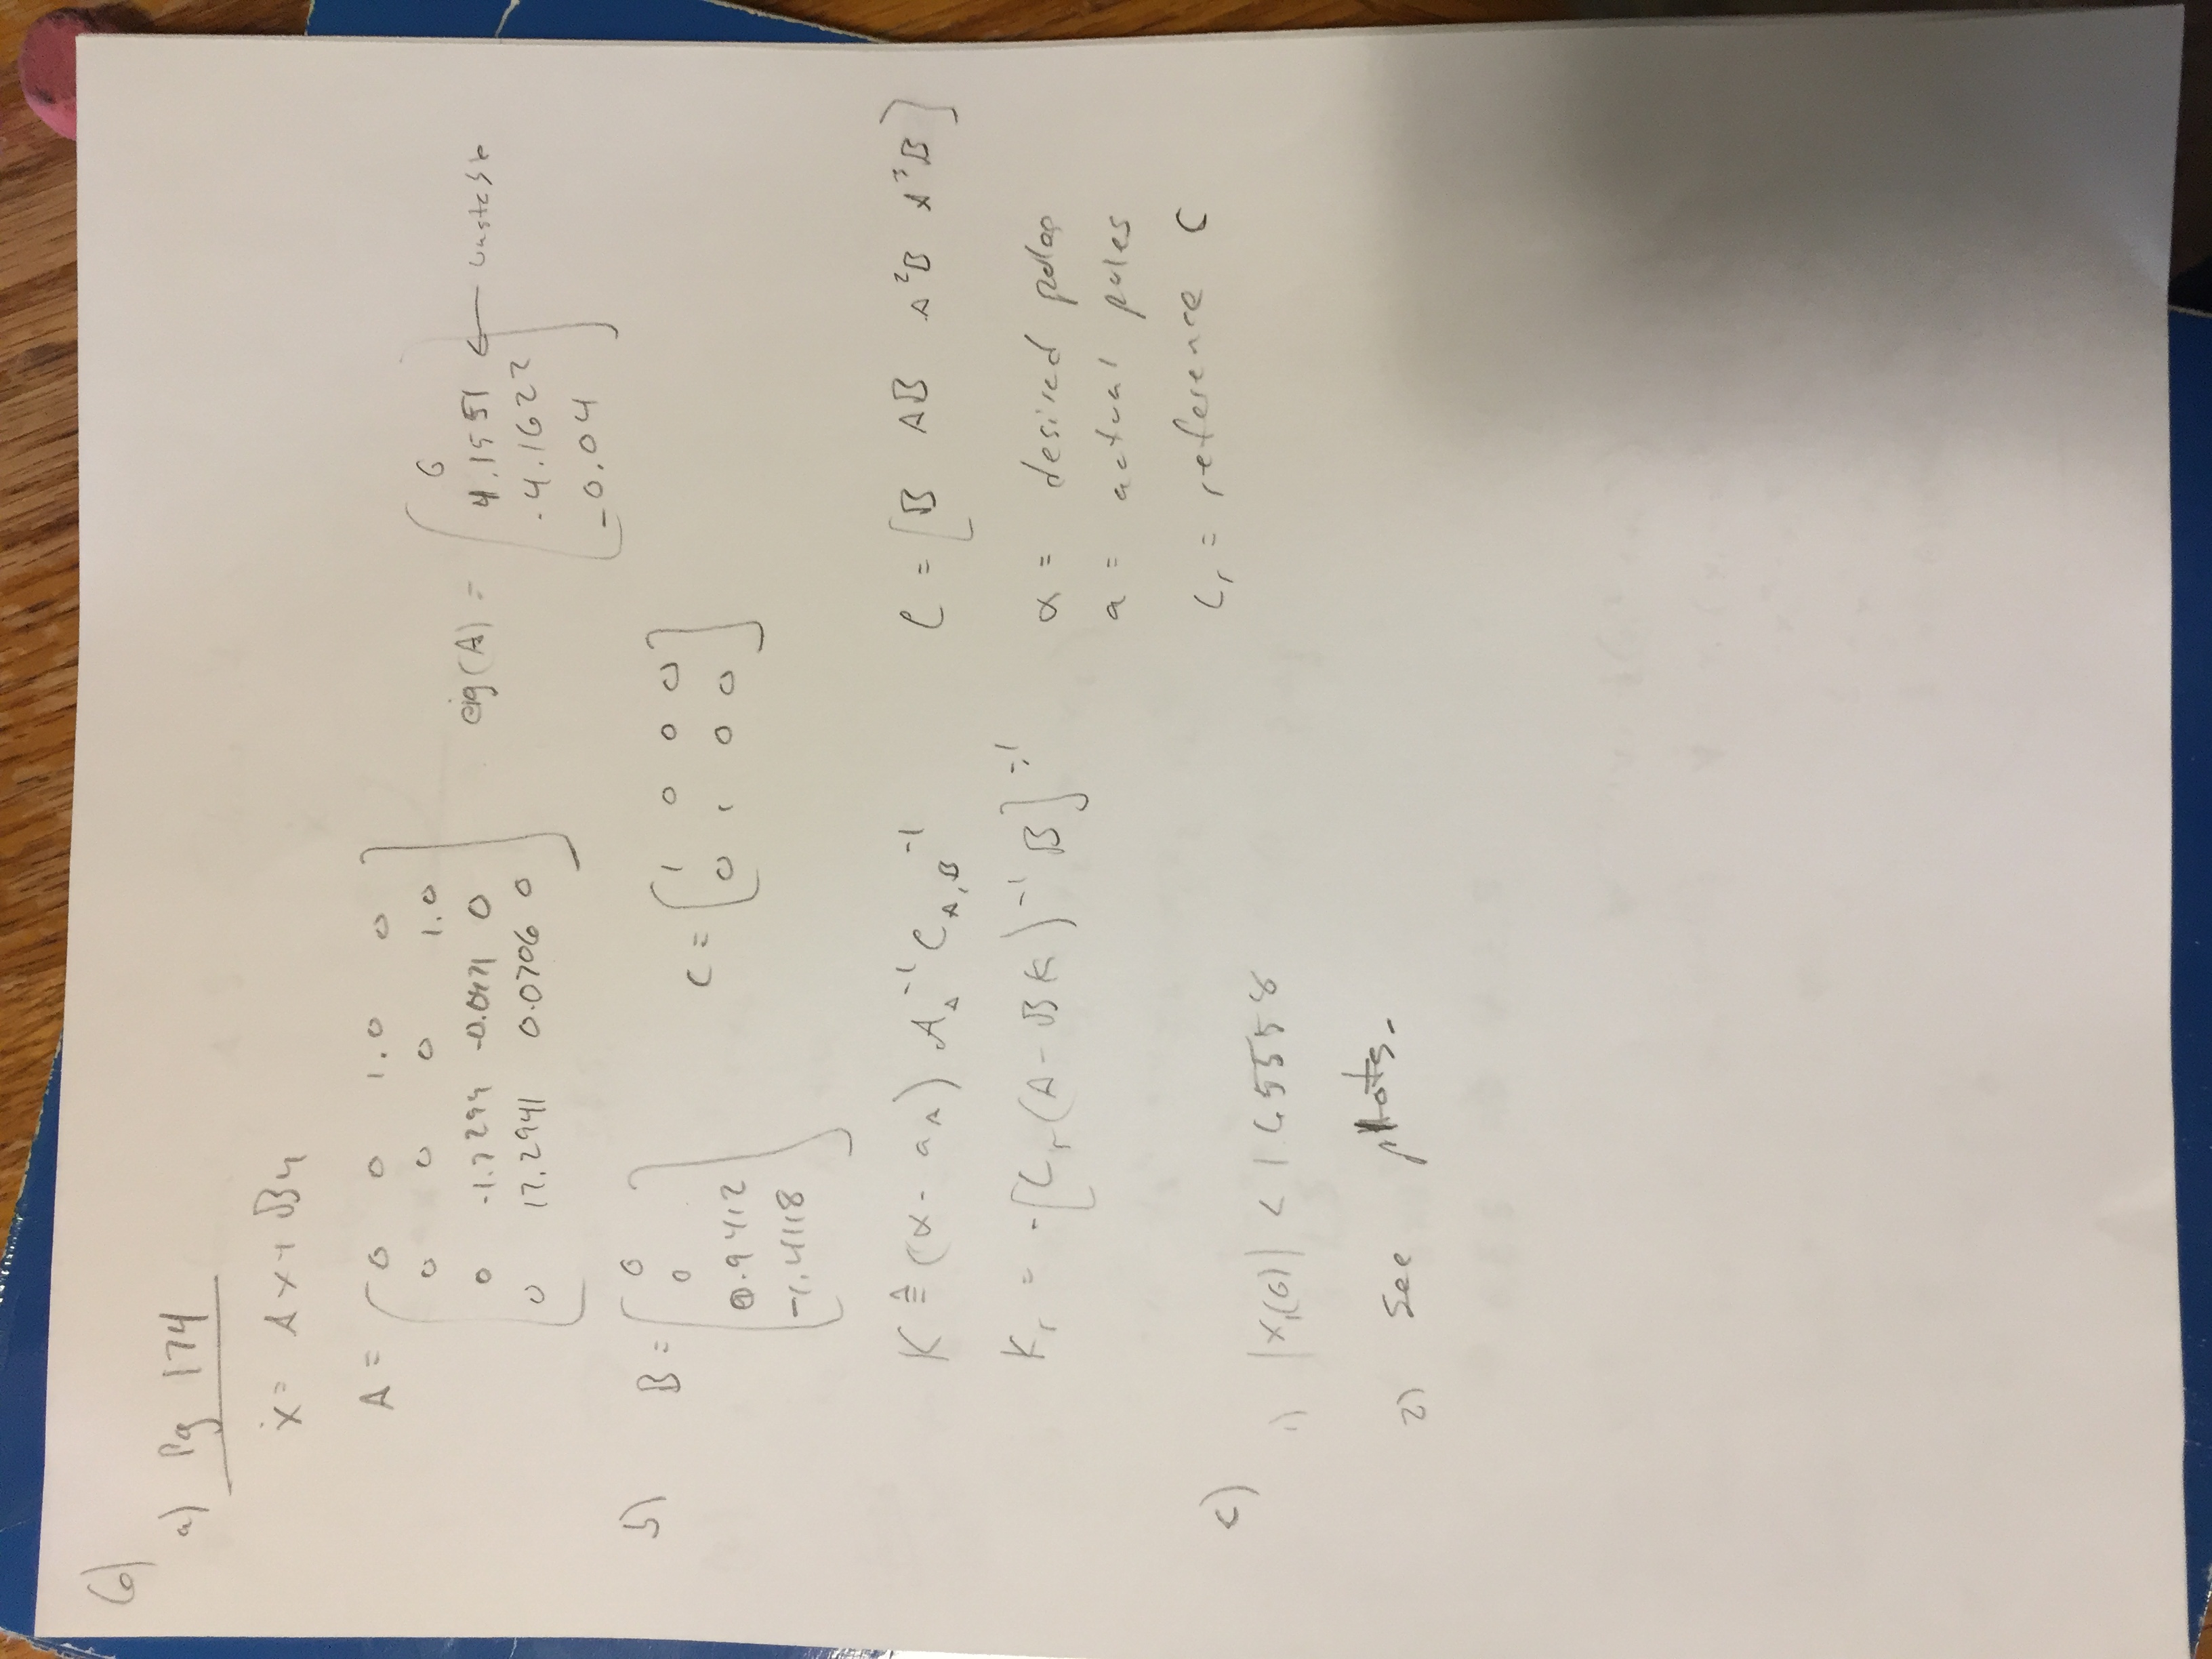 6)
a) Pg 174
ẋ = Ax + Bu
A = [ 0 0 1.0 0
0 0 0 1.0
0 -1.7294 -0.0471 0
0 17.2941 0.0706 0 ]
eig(A) = [ 0
4.1551 ← unstable
-4.1622
-0.04 ]
b) B = [ 0
0
0.9412
-1.4118 ]
C = [ 1 0 0 0
0 1 0 0 ]
K ≜ (α - a_A) 𝒜_A⁻¹ 𝒞_A,B⁻¹
𝒞 = [ B AB A²B A³B ]
K_r = -[C_r (A - BK)⁻¹ B]⁻¹
α = desired poles
a = actual poles
C_r = reference C
c)
1) |x₁(0)| < 1.65558
2) See plots.